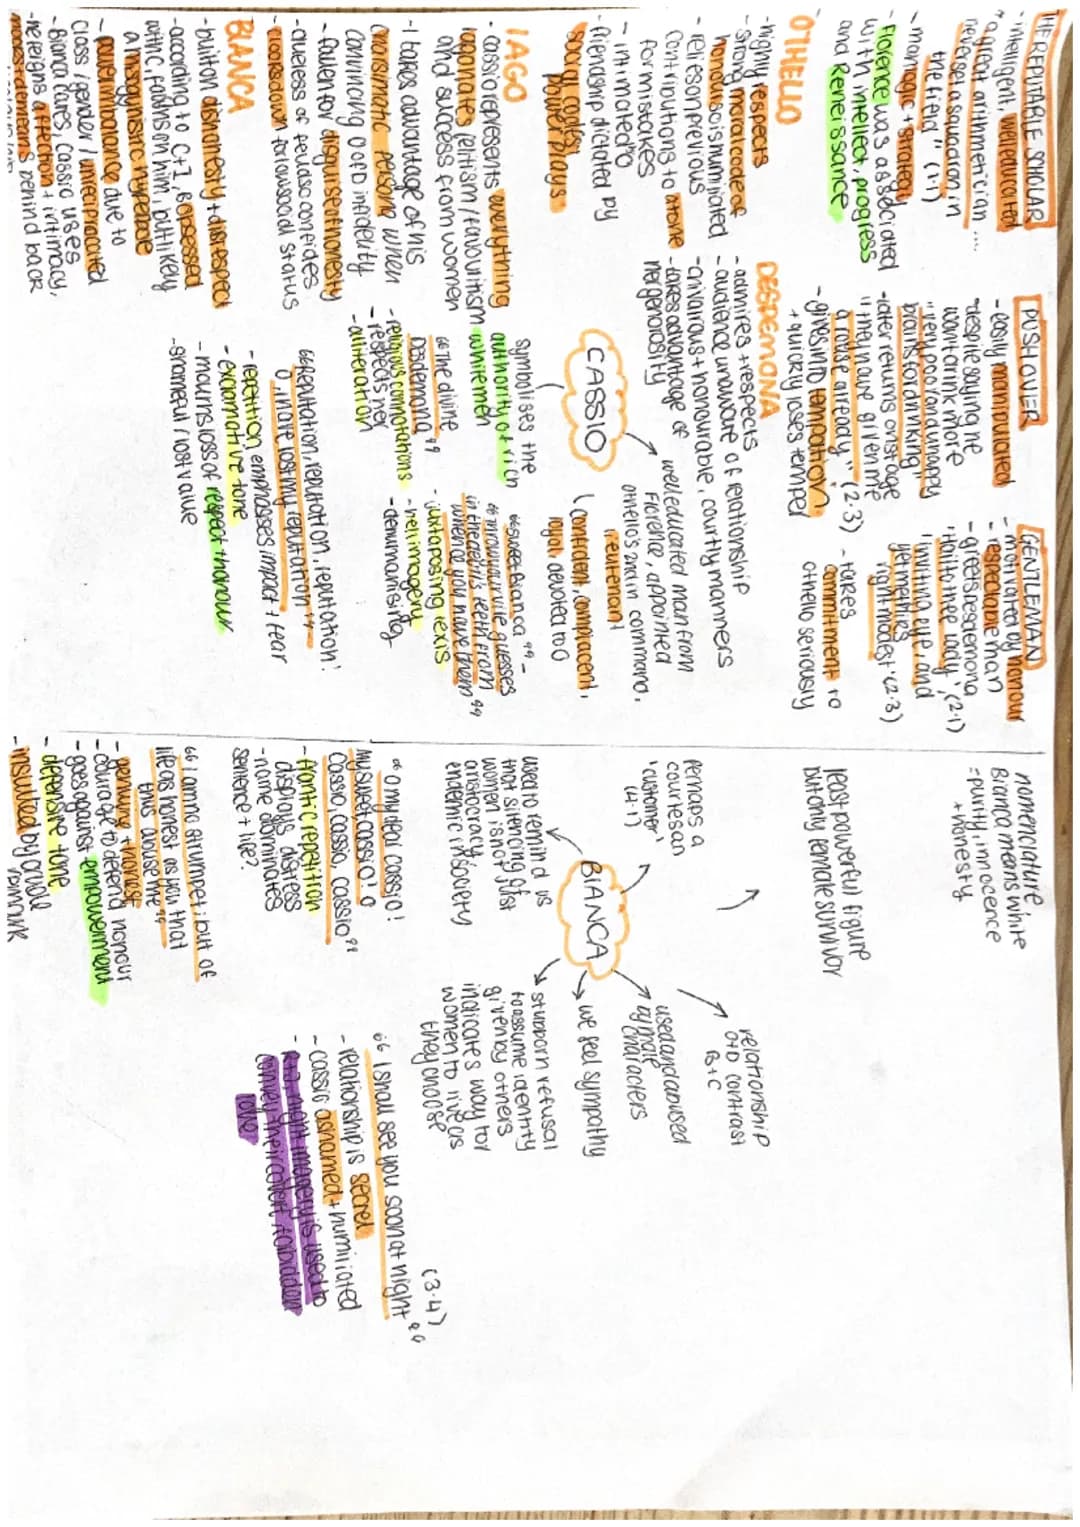 THE REPUTABLE SCHOLAR
- intelligent, well educated
"a great arithmetician ....
never set a squadron in
the field" (1.1)
- manages + strategy
- Florence was associated
with intellect, progress
and Renaissance
PUSHOVER
- easily manipulated
- despite saying he
want drink more
"very poor and unhappy
brains for drinking"
- later returns onstage
"they have given me
a rouse already" (2.3)
- gives into temptation
+ quickly loses temper
GENTLEMAN
- motivated by honour
- respectable man
- greets Desdemona
'Hail to thee lady' (2.1)
"inviting eye and
yet methinks
right modest" (2.3)
- takes
commitment to
Othello seriously
OTHELLO
- highly respects
- strong moral code of
honour so is humiliated
- relies on previous
contributions to atone
for mistakes
- intimate to
- friendship dictated by
social codes,
power plays
DESDEMONA
- admires + respects
- audience unaware of relationship
- chivalrous + honourable, courtly manners
- takes advantage of
her generosity
CASSIO
well educated man from
Florence, appointed
Othello's 2nd in command,
lieutenant
confident, complacent,
loyal, devoted to O
symbolises the
authority of rich
white men
IAGO
- cassio represents everything
Iago hates, elitism/favouritism
and success from women
- I takes advantage of his
charismatic persona when
convincing O of D infidelity
- fallen for disguise of honesty
- clueless of feud so confides
- looks down to I's low social status
"The divine
Desdemona"
- religious connotations
- respects her
- alliteration
"sweet Bianca" -
"Throw your vile guesses
in the devil's teeth from
whence you have them"
- juxtaposing lexis
- hell imagery
- dehumanising
BIANCA
- built on dishonesty + disrespect
- according to C + I, B obsessed
with C, fawns on him, but likely
a misogynistic hyperbole
- power imbalance due to
class/gender/unreciprocated
- Bianca cares, Cassio uses
- he feigns affection + intimacy,
mocks + demeans behind back
"Reputation, reputation, reputation!
O, I have lost my reputation"
- repetition, emphasises impact + fear
- exclamative tone
- mourns loss of respect + honour
- shameful / lost value
nomenclature
Bianca means white
- purity, innocence
+ honesty
least powerful figure
but only female survivor
perhaps a
courtesan
'customer'
(4.1)
relationship
O+D contrast
B+C
BIANCA
used and abused
by male
characters
we feel sympathy
stubborn refusal
to assume identity
given by others
indicates way for
women to live as
they choose
used to remind us
that silencing of
women isn't just
aristocracy,
endemic in society
"O my dear Cassio!
My sweet Cassio! O
Cassio, Cassio, Cassio"
- frantic repetition
displays distress
- name dominates
sentence + life?
"I shall see you soon at night" (3.4)
- relationship is secret
- cassio ashamed + humiliated
- night imagery is used to
convey their covert, forbidden
love
"I am no strumpet; but of
life as honest as you that
thus abuse me"
- genuine + honest
- courage to defend honour
- goes against empowerment
- defensive tone
- insulted by crude
remark